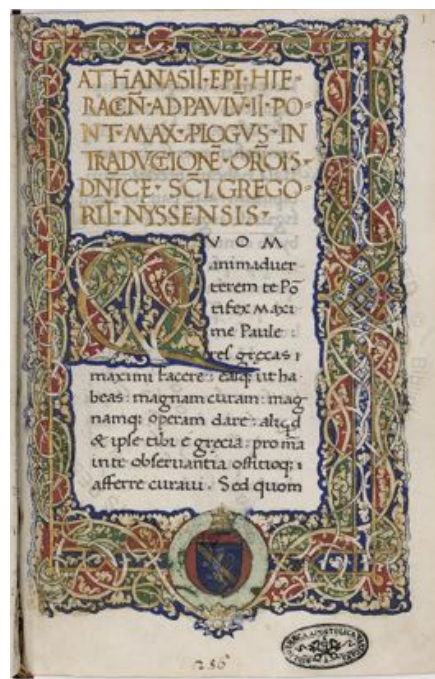 ATHANASII·EPI·HIE-
RACEN̄·AD PAVLV̄·II·PO-
NT·MAX·PLOGVS·IN
TRADVCTIONE̅·OROIS·
DNI̅CE·SC̅I·GREGO-
RII·NYSSENSIS·
QVOM
animaduer
terem te Po̅
tifex Maxi
me Paule
res grecas i
maximi facere: easq; ut ha
beas: magnam curam: mag
namq; operam dare: aliq̇d
& ipse tibi e grecia: pro ma̅
in te obseruantia offitioq; i
afferre curaui. Sed quom
1